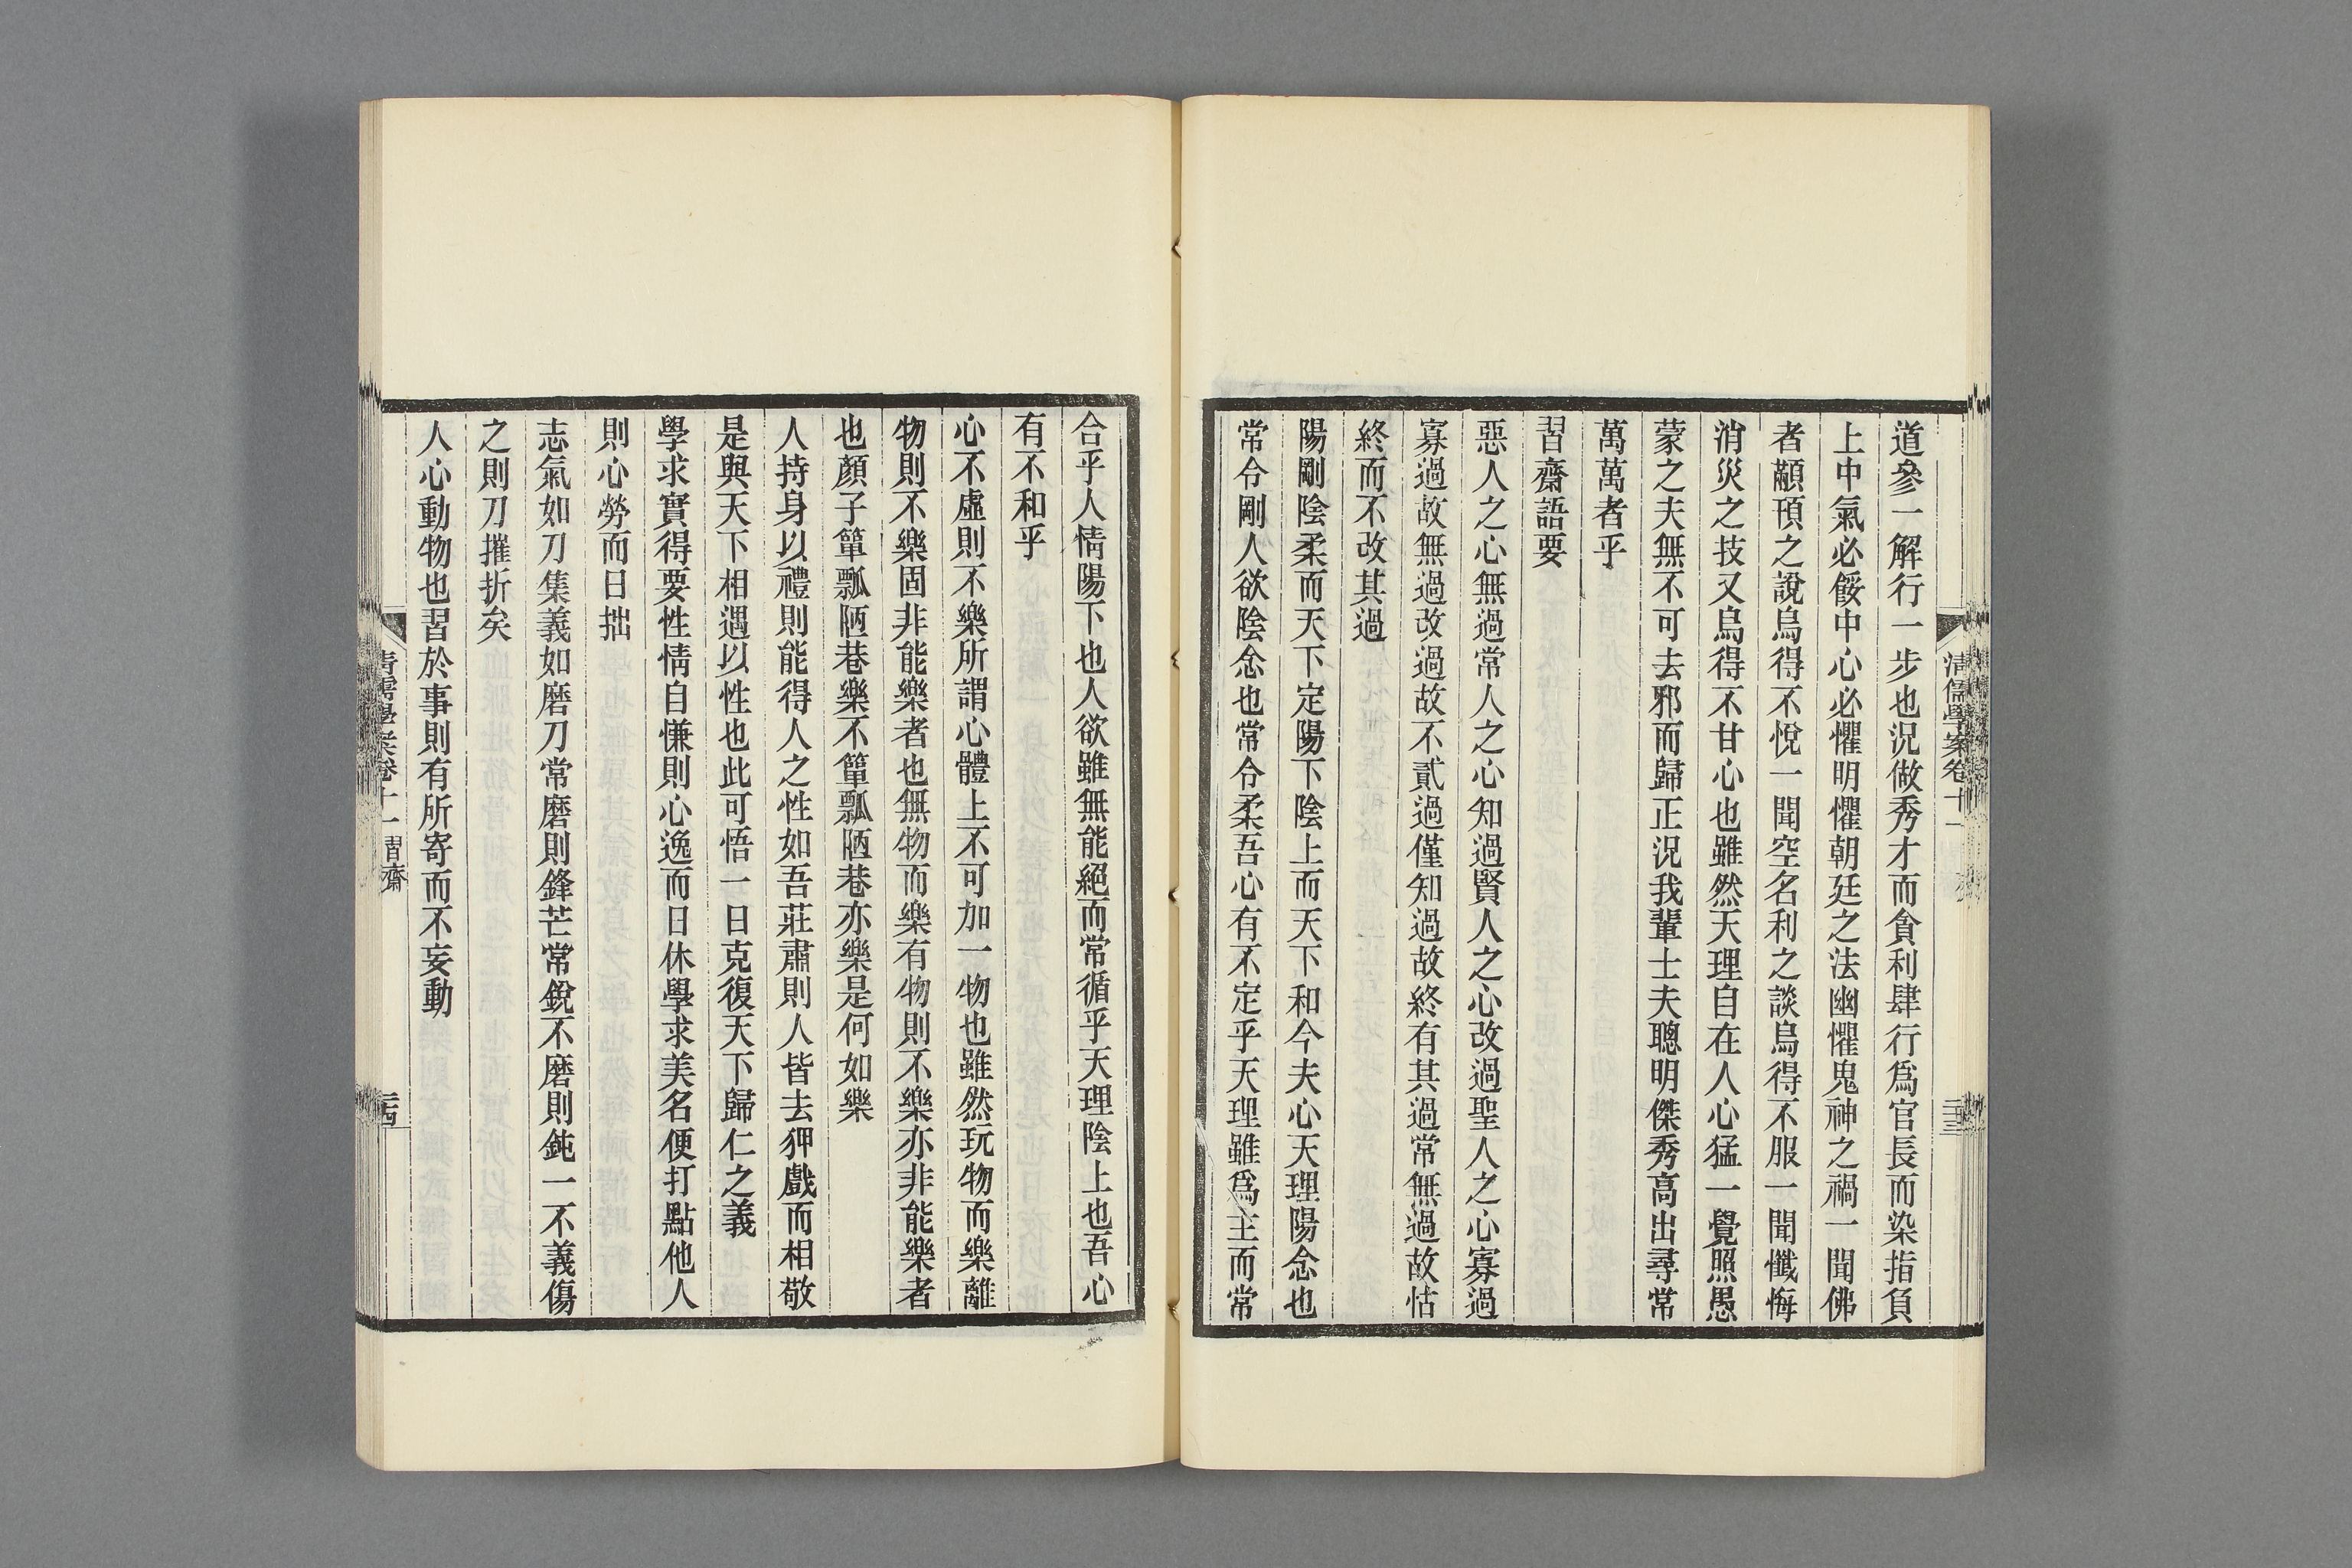 道參一解行一步也況做秀才而貪利肆行爲官長而染指負
上中氣必餒中心必懼明懼朝廷之法幽懼鬼神之禍一聞佛
者顢頇之說烏得不悅一聞空名利之談烏得不服一聞懺悔
消災之技又烏得不甘心也雖然天理自在人心猛一覺照愚
蒙之夫無不可去邪而歸正況我輩士夫聰明傑秀高出尋常
萬萬者乎
習齋語要
惡人之心無過常人之心知過賢人之心改過聖人之心寡過
寡過故無過改過故不貳過僅知過故終有其過常無過故怙
終而不改其過
陽剛陰柔而天下定陽下陰上而天下和今夫心天理陽念也
常令剛人欲陰念也常令柔吾心有不定乎天理雖爲主而常
清儒學案卷十一
二十三
合乎人情陽下也人欲雖無能絕而常循乎天理陰上也吾心
有不和乎
心不虛則不樂所謂心體上不可加一物也雖然玩物而樂離
物則不樂固非能樂者也無物而樂有物則不樂亦非能樂者
也顏子簞瓢陋巷樂不簞瓢陋巷亦樂是何如樂
人持身以禮則能得人之性如吾莊肅則人皆去狎戲而相敬
是與天下相遇以性也此可悟一日克復天下歸仁之義
學求實得要性情自慊則心逸而日休學求美名便打點他人
則心勞而日拙
志氣如刀集義如磨刀常磨則鋒芒常銳不磨則鈍一不義傷
之則刀摧折矣
人心動物也習於事則有所寄而不妄動
清儒學案卷十一 習齋